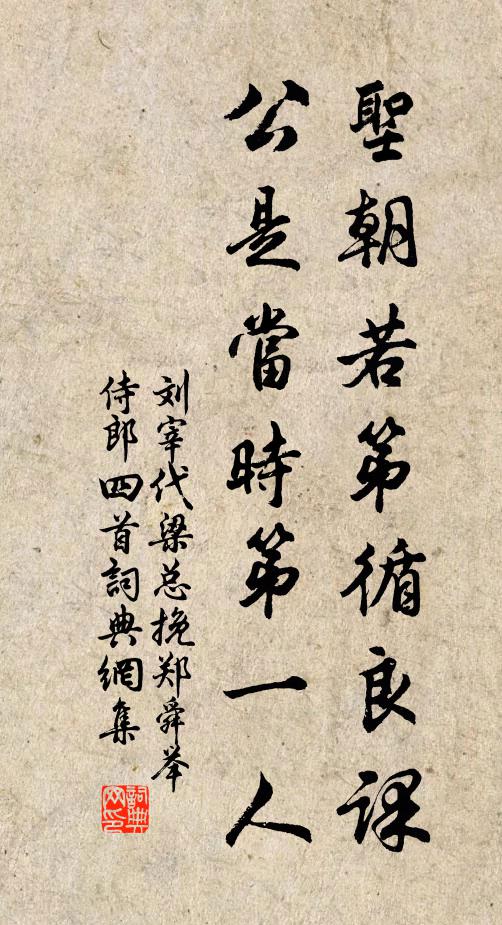 聖朝若第循良課
公是當時第一人
刘宰代梁总挽郑舜举
侍郎四首詞典網集
詞典網印